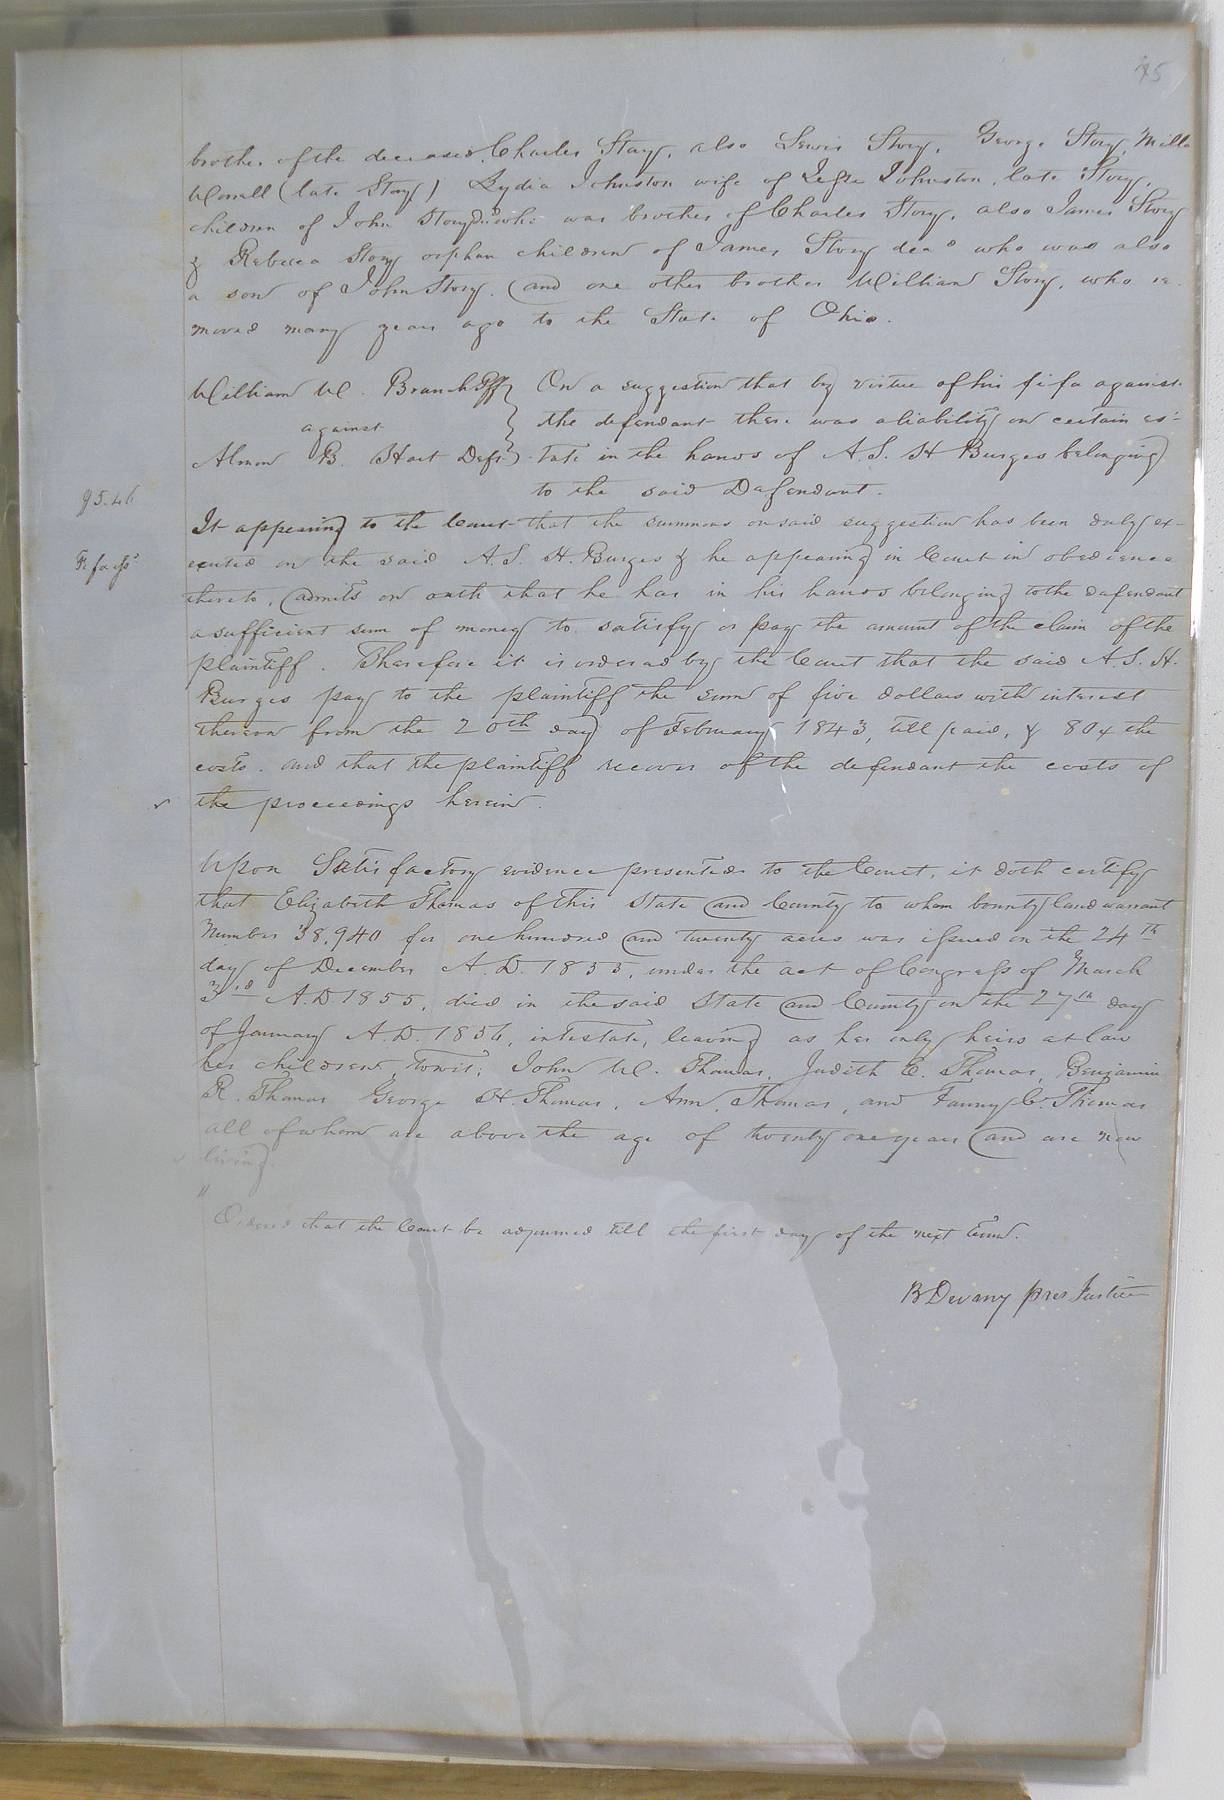 45
brother of the deceased, Charles Story, also Lewis Story, George Story, Milla
Worrell (late Story) Lydia Johnston wife of Johnston, late Story,
children of John Story dec'd who was brother of Charles Story, also James Story
& Rebecca Story orphan children of James Story decd who was also
a son of John Story. and one other brother William Story, who re-
moved many years ago to the State of Ohio.
William W. Branch Plff
against
Almon B. Hart Deft.
On a suggestion that by virtue of his fi fa against
the defendant there was a liability on certain es-
tate in the hands of A. S. H Burges belonging
to the said Defendant.
$5.46
It appearing to the Court that the summons on said suggestion has been duly ex-
ecuted on the said A. S. H. Burges & he appearing in Court in obedience
Fi fa
thereto, admits on oath that he has in his hands belonging to the defendant
a sufficient sum of money to satisfy or pay the amount of the claim of the
plaintiff. Therefore it is ordered by the Court that the said A. S. H.
Burges pay to the plaintiff the sum of five dollars with interest
thereon from the 20th day of February 1843, till paid, & 80¢ the
costs. and that the plaintiff recover of the defendant the costs of
the proceedings herein.
Upon Satisfactory evidence presented to the Court, it doth certify
that Elizabeth Thomas of this State and County to whom bounty land warrant
Number 38,940 for one hundred and twenty acres was issued on the 24th
day of December A. D. 1855, under the act of Congress of March
3rd A.D 1855, died in the said State and County on the 27th day
of January A. D. 1856, intestate, leaving as her only heirs at law
her children, towit; John W. Thomas, Judith C. Thomas, Benjamin
R. Thomas George H. Thomas, Ann Thomas, and Fanny C. Thomas
all of whom are above the age of twenty one years and are now
living.
Ordered that the Court be adjourned till the first day of the next Term.
B Devany pres Justice